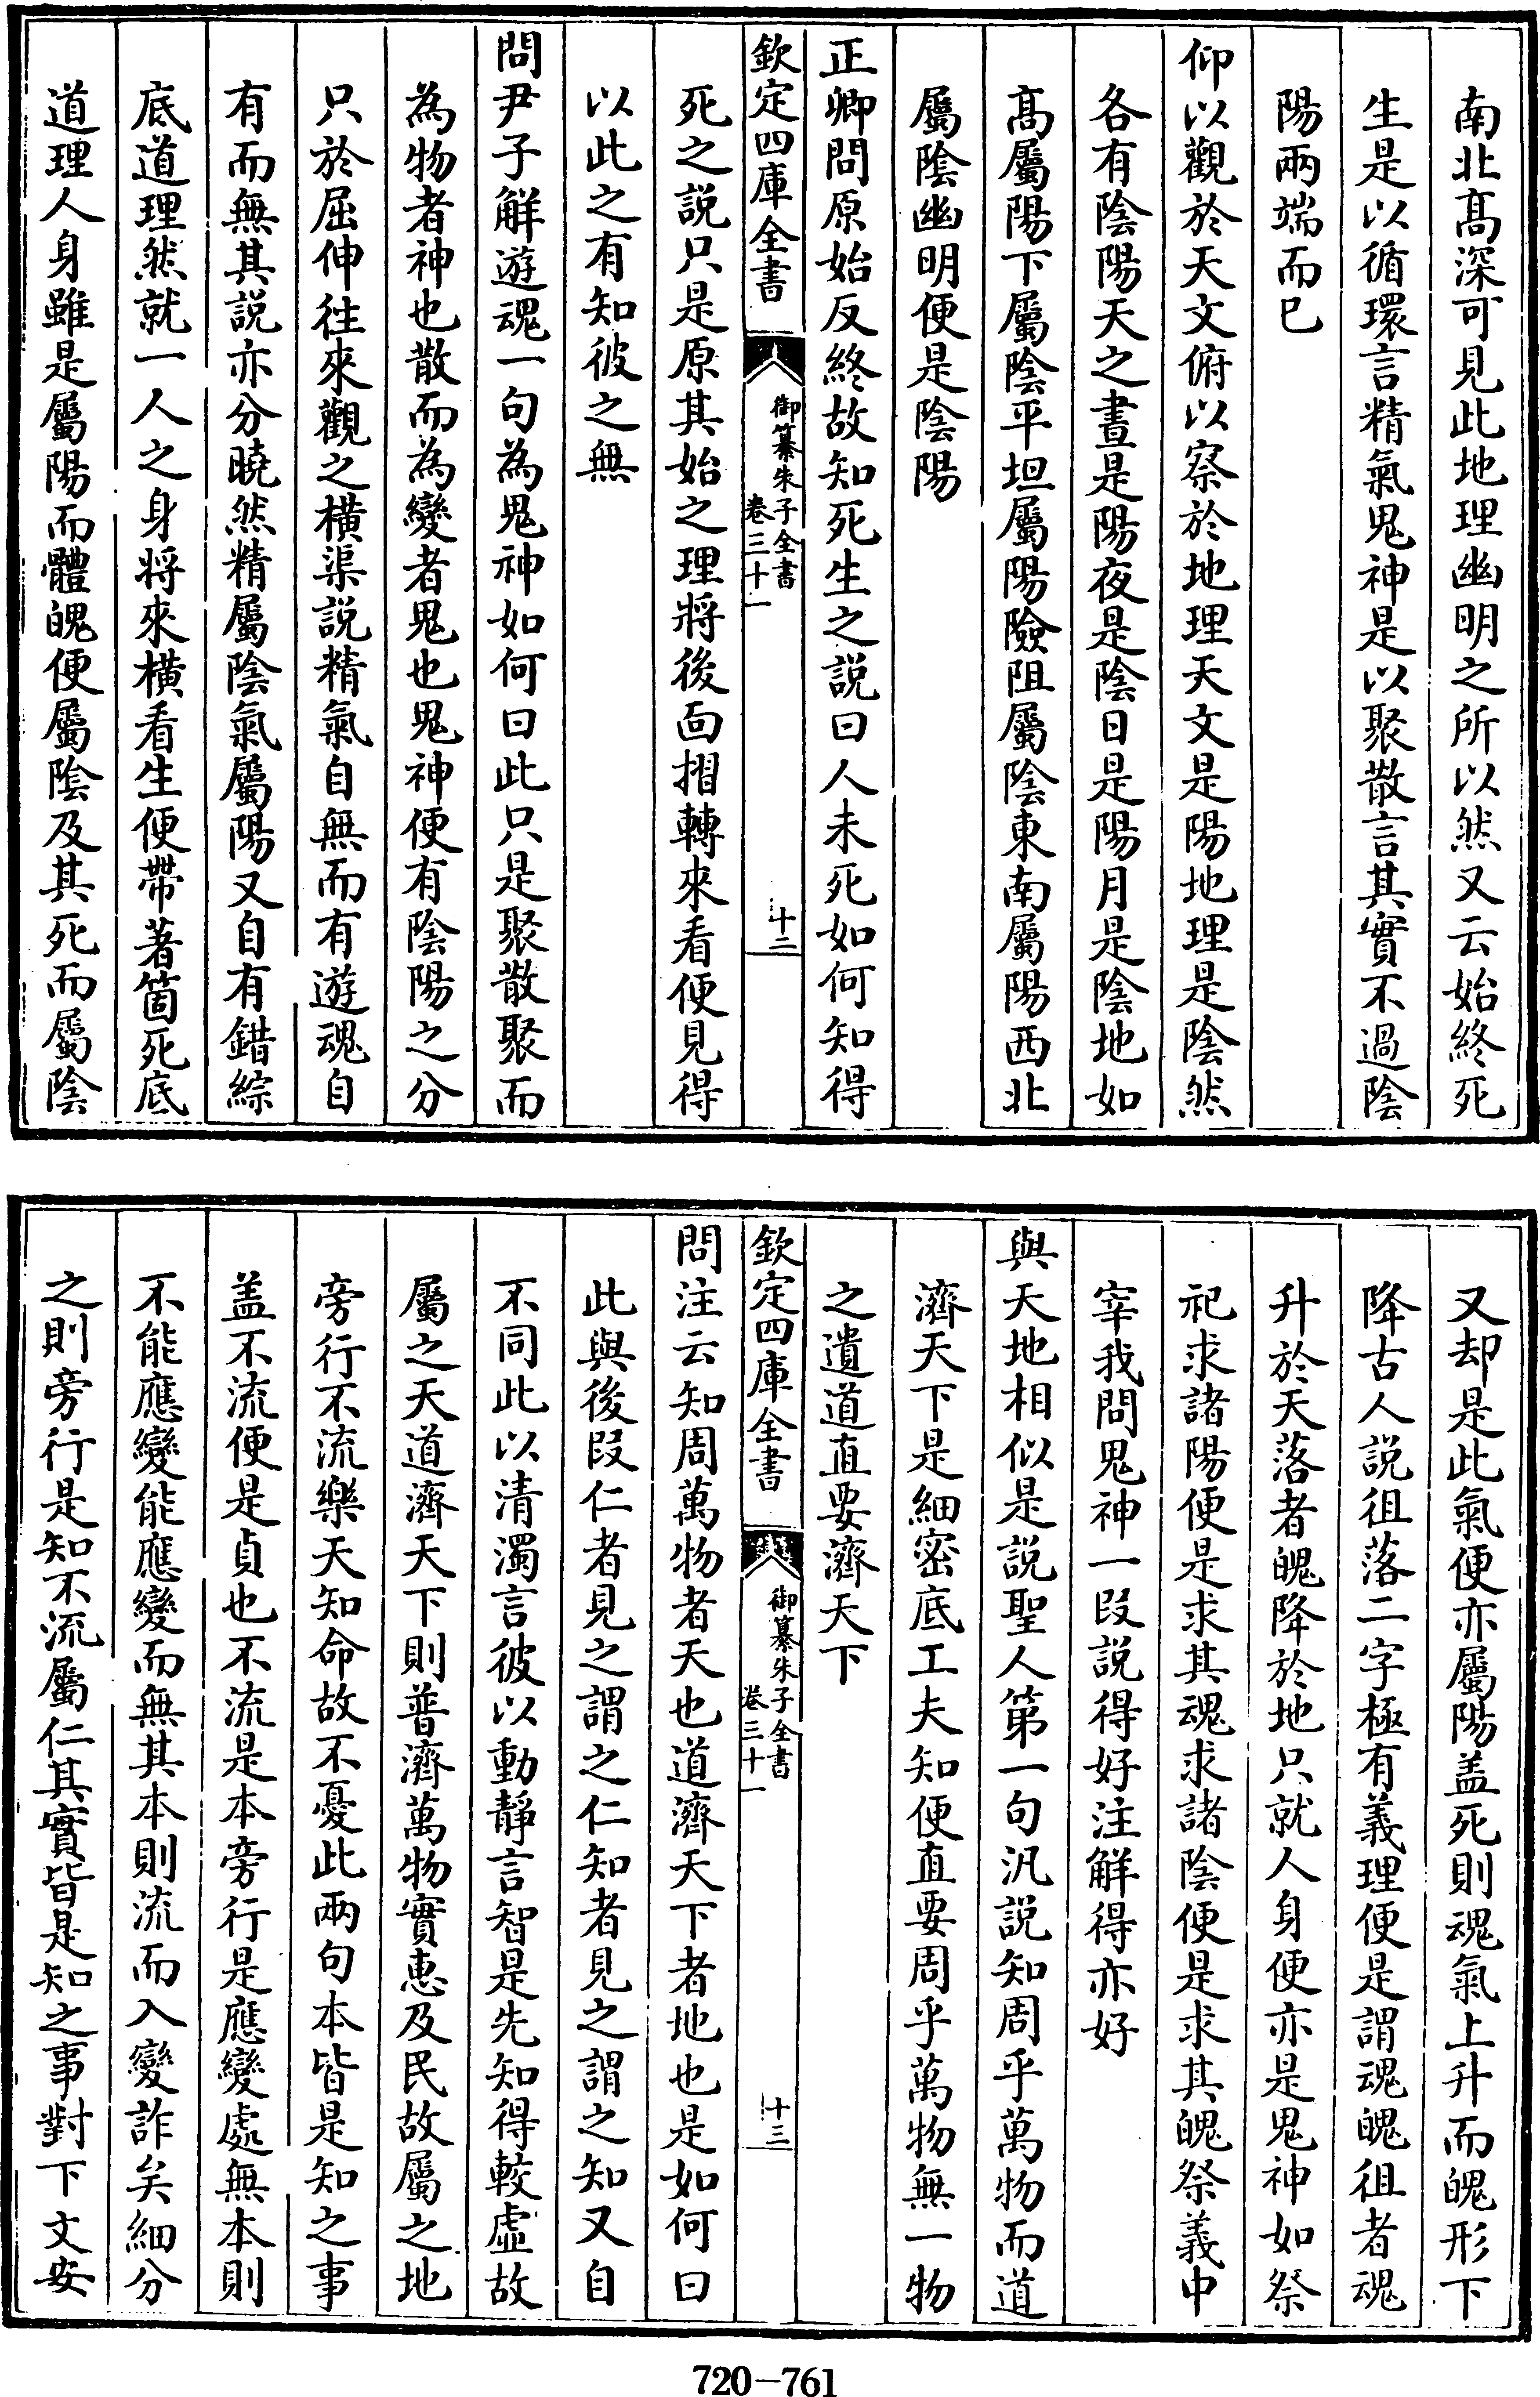 南北髙深可見此地理幽明之所以然又云始終死
生是以循環言精氣鬼神是以聚散言其實不過陰
陽兩端而已
仰以觀於天文俯以察於地理天文是陽地理是陰然
各有陰陽天之晝是陽夜是陰日是陽月是陰地如
髙屬陽下屬陰平坦屬陽險阻屬陰東南屬陽西北
屬陰幽明便是陰陽
正卿問原始反終故知死生之説曰人未死如何知得
欽定四庫全書
御纂朱子全書
卷三十一
十二
死之説只是原其始之理將後面摺轉來看便見得
以此之有知彼之無
問尹子解遊魂一句為鬼神如何曰此只是聚散聚而
為物者神也散而為變者鬼也鬼神便有陰陽之分
只於屈伸往來觀之横渠説精氣自無而有遊魂自
有而無其説亦分曉然精屬陰氣屬陽又自有錯綜
底道理然就一人之身將來横看生便帶著箇死底
道理人身雖是屬陽而體魄便屬陰及其死而屬陰
又却是此氣便亦屬陽盖死則魂氣上升而魄形下
降古人説徂落二字極有義理便是謂魂魄徂者魂
升於天落者魄降於地只就人身便亦是鬼神如祭
祀求諸陽便是求其魂求諸陰便是求其魄祭義中
宰我問鬼神一段説得好注解得亦好
與天地相似是説聖人第一句汎説知周乎萬物而道
濟天下是細密底工夫知便直要周乎萬物無一物
之遺道直要濟天下
欽定四庫全書
御纂朱子全書
卷三十一
十三
問注云知周萬物者天也道濟天下者地也是如何曰
此與後段仁者見之謂之仁知者見之謂之知又自
不同此以清濁言彼以動靜言智是先知得較虛故
屬之天道濟天下則普濟萬物實惠及民故屬之地
旁行不流樂天知命故不憂此兩句本皆是知之事
盖不流便是貞也不流是本旁行是應變處無本則
不能應變能應變而無其本則流而入變詐矣細分
之則旁行是知不流屬仁其實皆是知之事對下文安
720-761